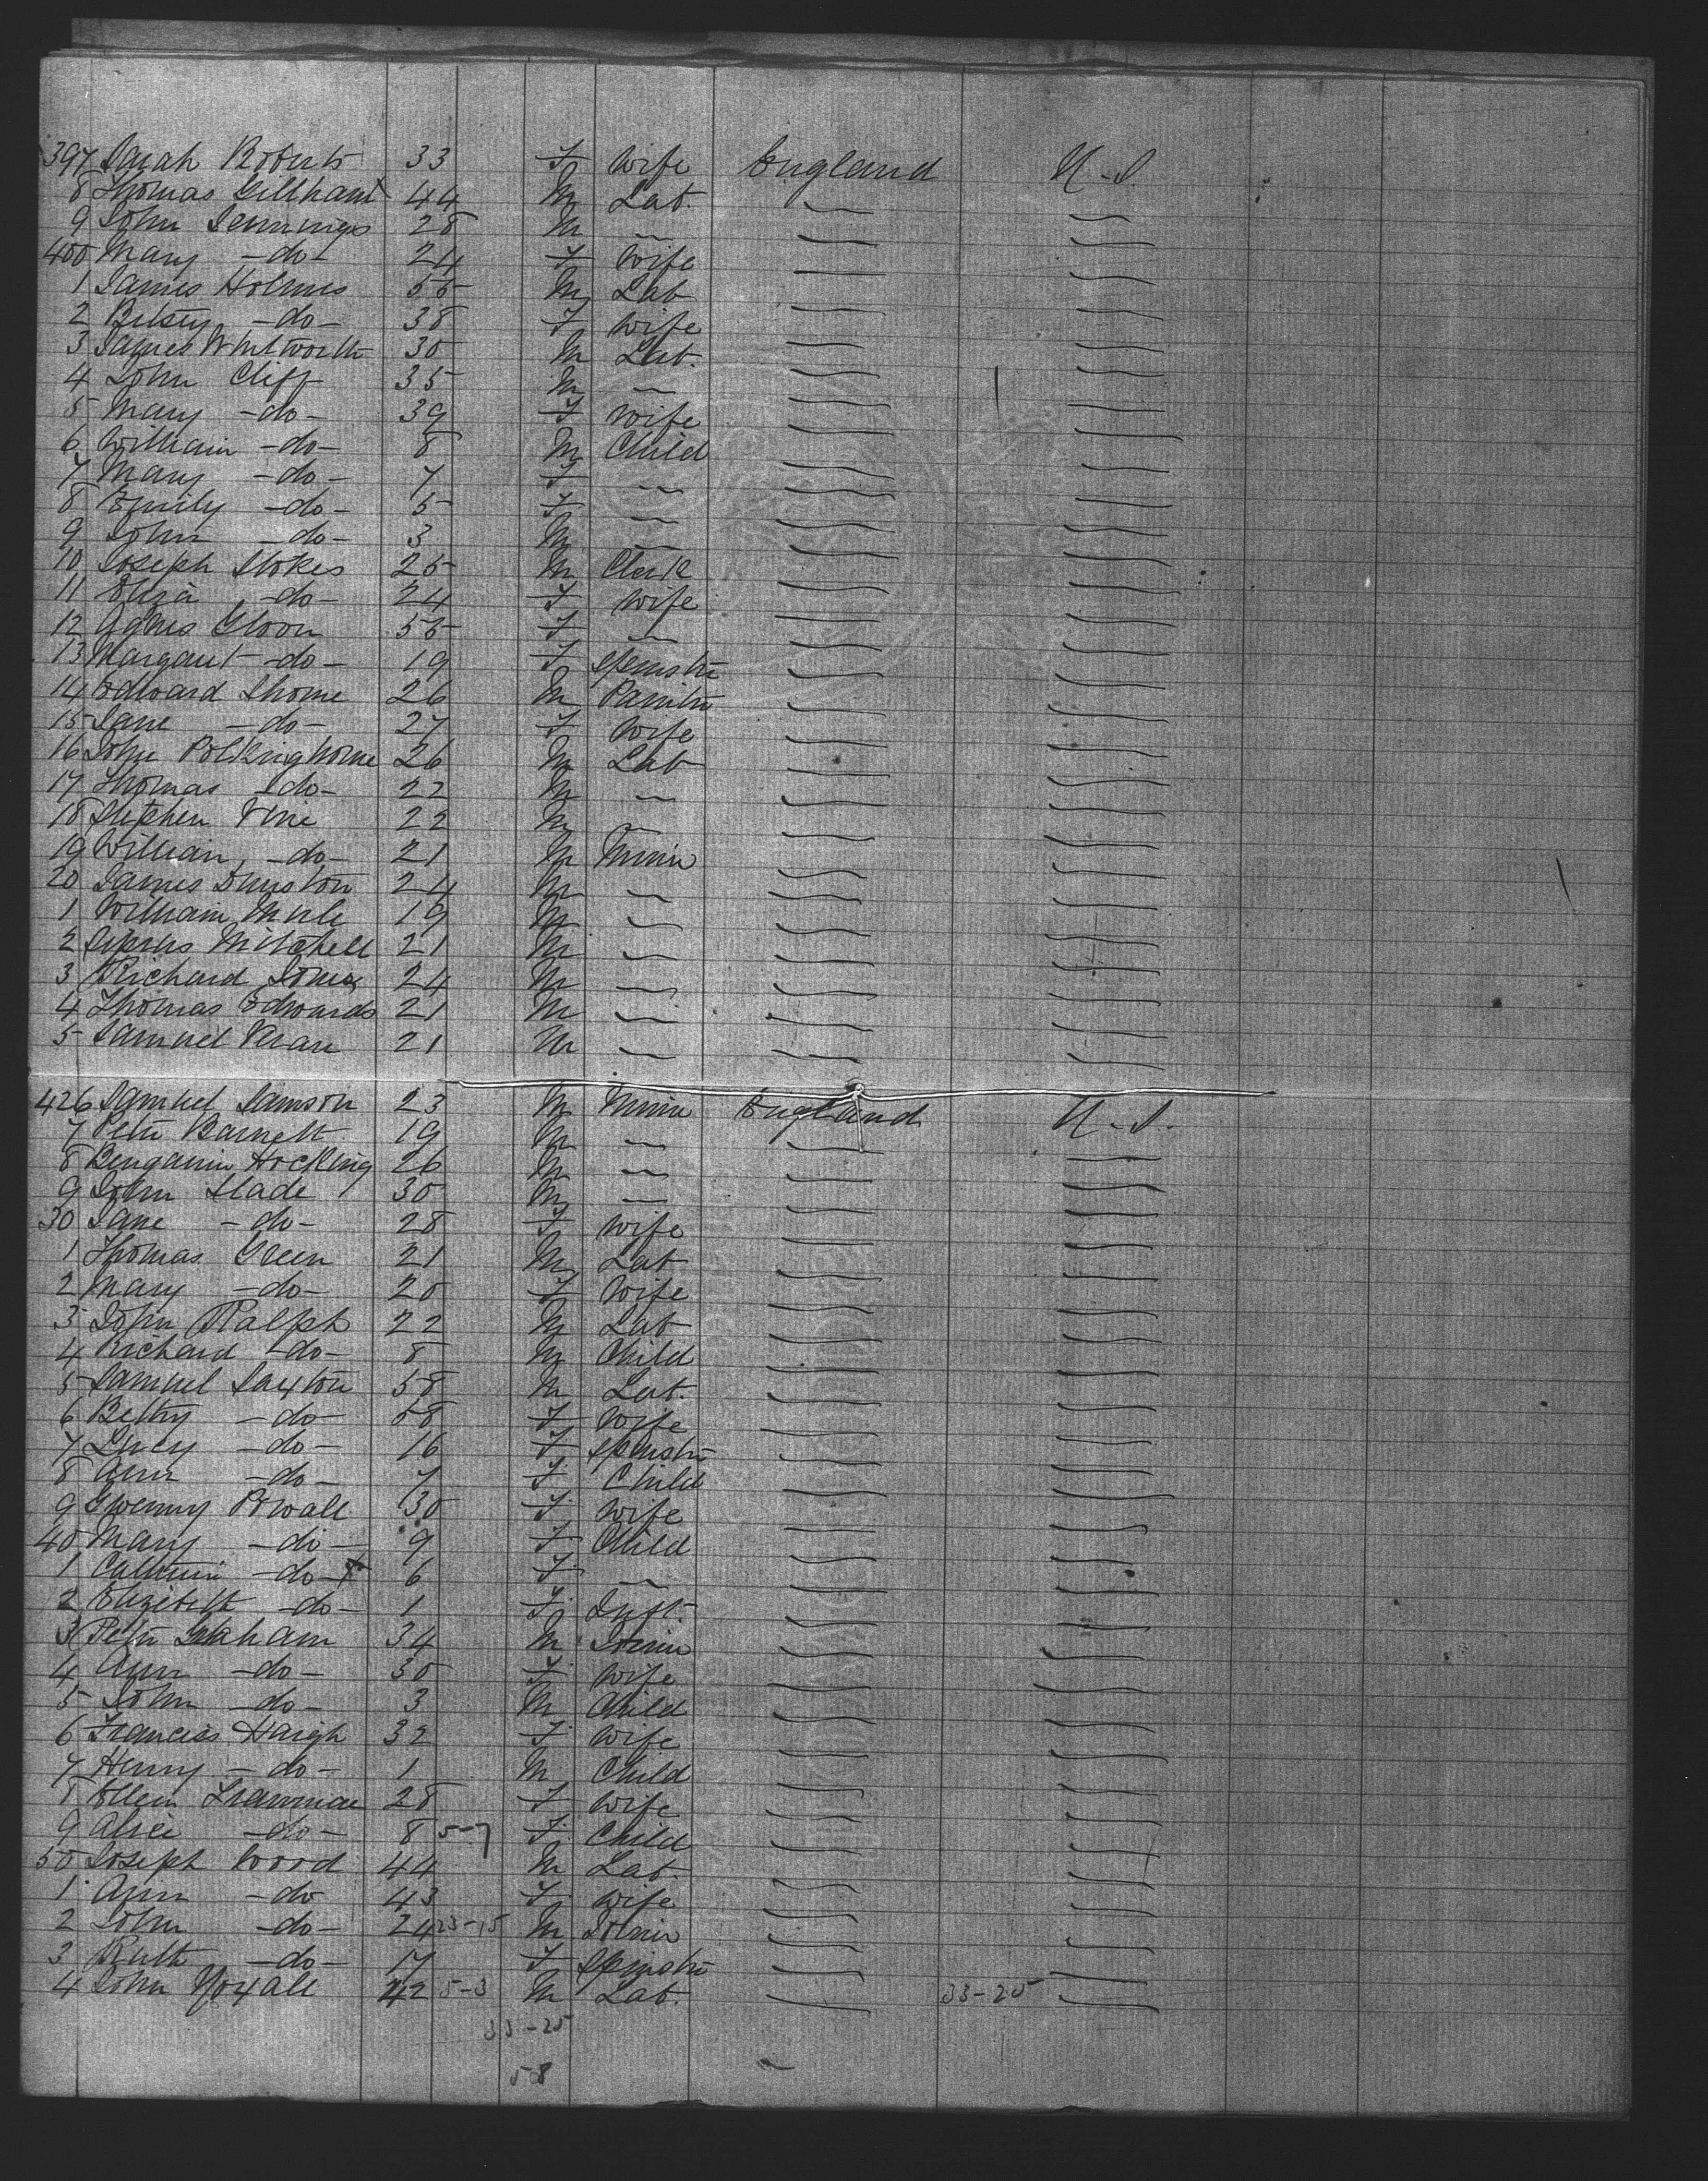 397 Sarah Roberts 33 F Wife England U.S.
8 Thomas Gillham 44 M Lab. — —
9 John Jennings 28 M — — —
400 Mary -do- 24 F Wife — —
1 James Holmes 55 M Lab — —
2 Betsey -do- 38 F Wife — —
3 James Whitworth 30 M Lab. — —
4 John Cliff 35 M — — —
5 Mary -do- 39 F Wife — —
6 William -do- 8 M Child — —
7 Mary -do- 7 F — — —
8 Emily -do- 5 F — — —
9 John -do- 3 M — — —
10 Joseph Stokes 25 M Clerk — —
11 Eliza -do- 24 F Wife — —
12 Agnes 55 F — — —
13 Margaret -do- 19 F Spinster — —
14 Edward Thorne 26 M Painter — —
15 Jane -do- 27 F Wife — —
16 John Polkinghorne 26 M Lab — —
17 Thomas -do- 22 M — — —
18 Stephen Vine 22 M — — —
19 William -do- 21 M Miner — —
20 James Johnston 24 M — — —
1 William 19 M — — —
2 Cyprus Mitchell 21 M — — —
3 Richard Jones 24 M — — —
4 Thomas Edwards 21 M — — —
5 Samuel 21 M — — —
426 Samuel Samson 23 M Miner England U.S.
7 Peter Barnett 19 M — — —
8 Bengamin Hocking 26 M — — —
9 John Slade 30 M — — —
30 Jane -do- 28 F Wife — —
1 Thomas Green 21 M Lab — —
2 Mary -do- 20 F Wife — —
3 John Ralph 22 M Lab — —
4 Richard -do- 8 M Child — —
5 Samuel Saxton 58 M Lab. — —
6 Betty -do- 58 F Wife — —
7 Lucy -do- 16 F Spinster — —
8 Ann -do- 7 F Child — —
9 Gwenny Powall 30 F Wife — —
40 Mary -do- 9 F Child — —
1 Catherine -do- 6 F — — —
2 Elizabeth -do- 1 F Inft. — —
3 Peter Graham 34 M Joiner — —
4 Ann -do- 30 F Wife — —
5 John -do- 3 M Child — —
6 Francis Haigh 32 F Wife — —
7 Henry -do- 1 M Child — —
8 Ellen 28 F Wife — —
9 Alice -do- 8 5-7 F Child — —
50 Joseph Wood 44 M Lab. — —
1 Ann -do 43 F Wife — —
2 John -do- 24 23-15 M Joiner — —
3 Ruth -do- 17 F Spinster — —
4 John Yoxall 42 5-3 M Lab. — 33-25 —
33-25
58